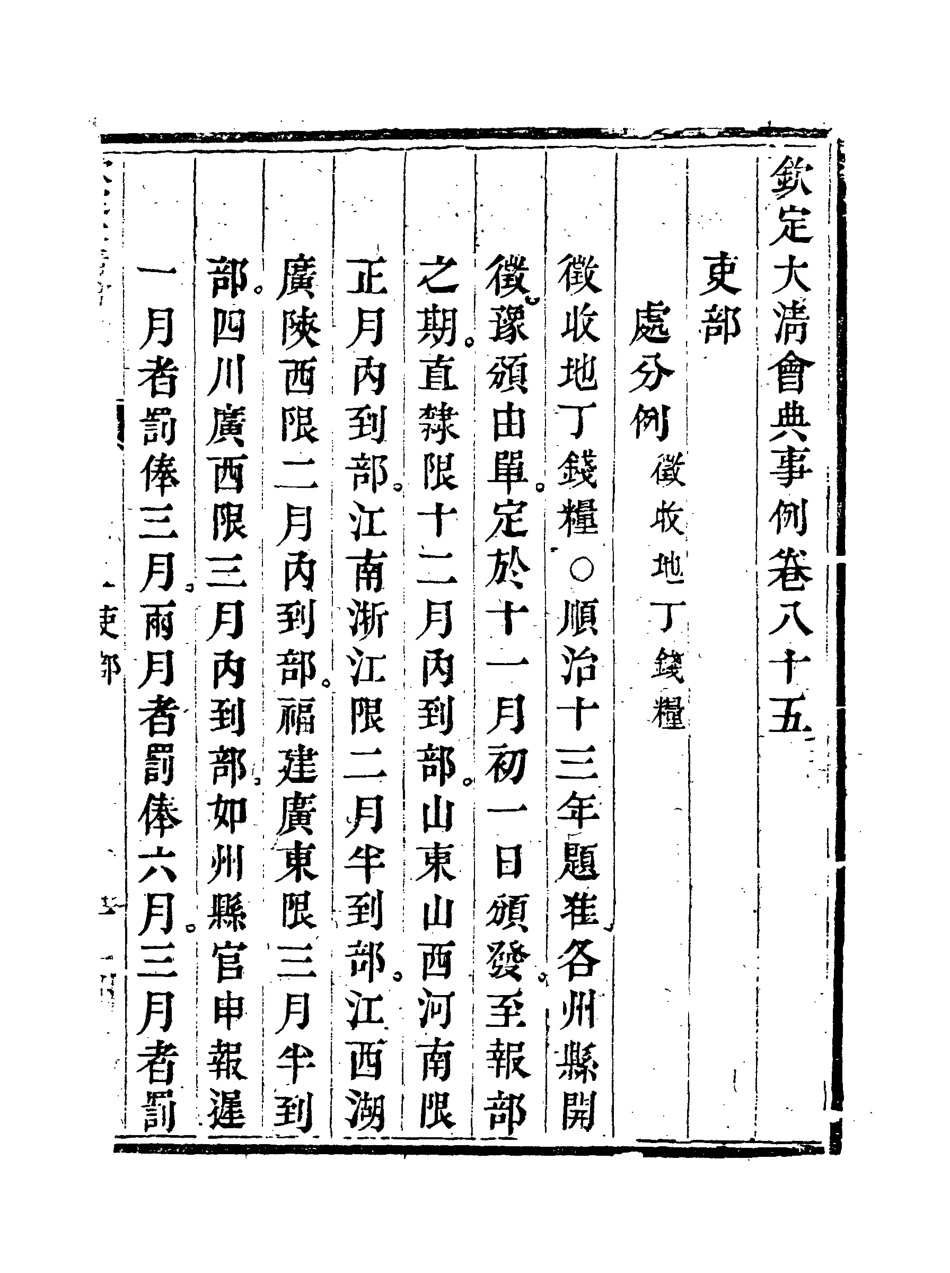 欽定大淸會典事例卷八十五
吏部
處分例 徵收地丁錢糧
徵收地丁錢糧○順治十三年題准各州縣開
徵豫頒由單。定於十一月初一日頒發。至報部
之期。直隸限十二月內到部。山東山西河南限
正月內到部。江南浙江限二月半到部。江西湖
廣陝西限二月內到部。福建廣東限三月半到
部。四川廣西限三月內到部。如州縣官申報遲
一月者罰俸三月。兩月者罰俸六月。三月者罰
吏部